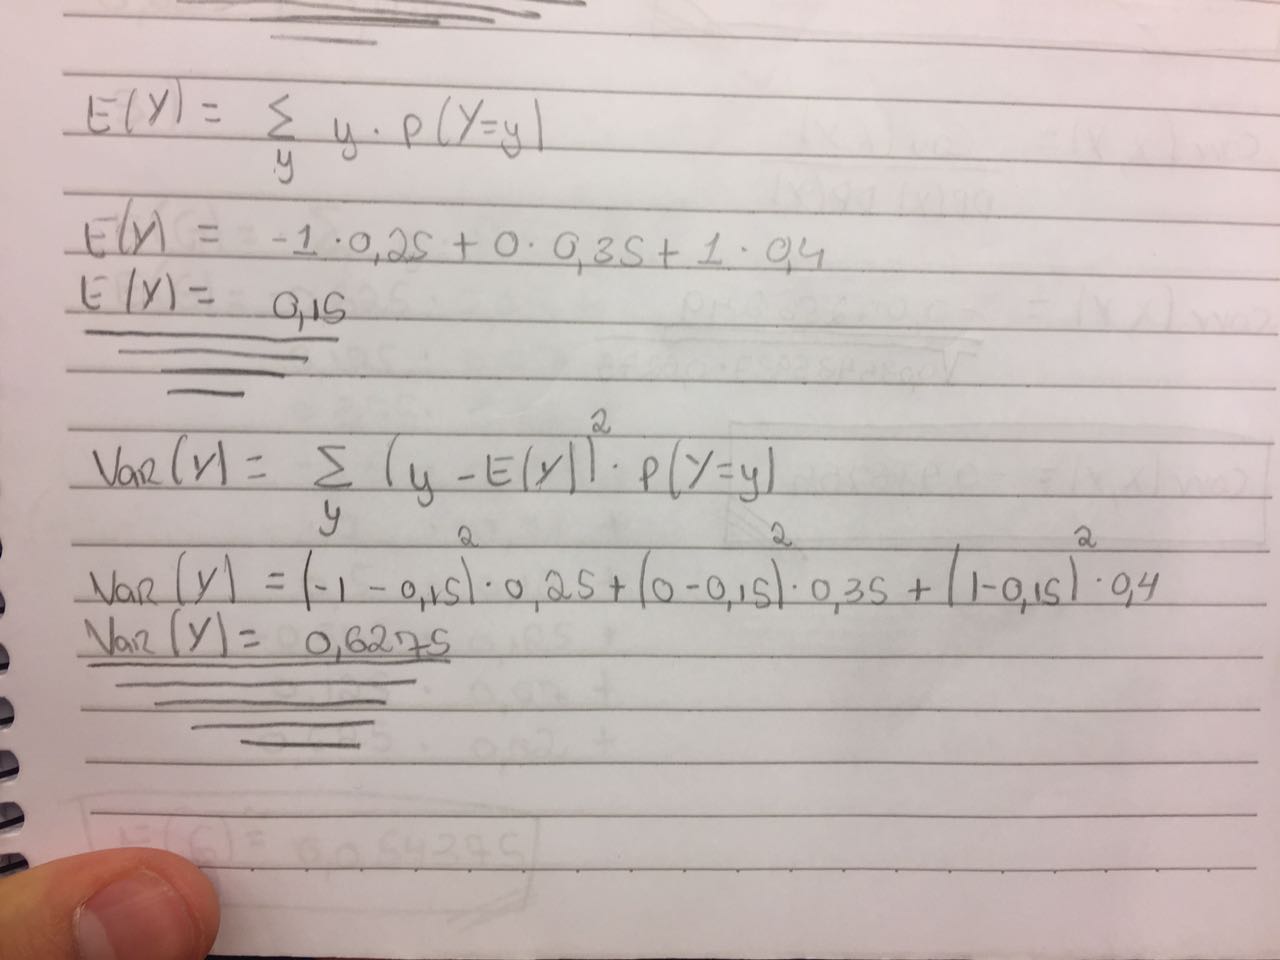 E(Y) = Σ y · P(Y=y)
y
E(Y) = -1 · 0,25 + 0 · 0,35 + 1 · 0,4
E(Y) = 0,15
Var(Y) = Σ (y - E(Y))² · P(Y=y)
y
Var(Y) = (-1 - 0,15)² · 0,25 + (0 - 0,15)² · 0,35 + (1 - 0,15)² · 0,4
Var(Y) = 0,6275